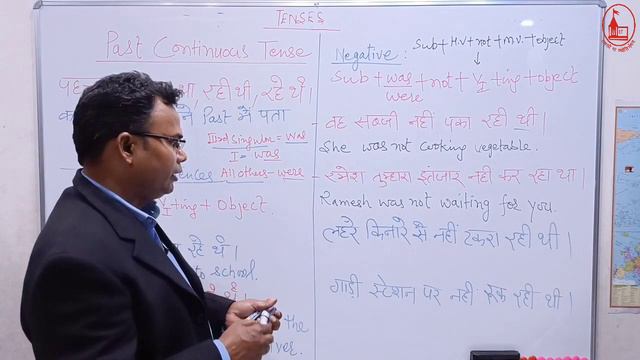 TENSES
Past Continuous Tense
रही थी, रहे थे।
Past में पता
IIIrd singular = was
I = was
All others - were
V1 + ing + Object
रहे थे।
to school.
the
Negative: Sub + H.V + not + M.V. + object
↓
Sub + was + not + V1 + ing + object
were
- वह सब्जी नहीं पका रही थी।
She was not cooking vegetable.
- रमेश तुम्हारा इंतजार नहीं कर रहा था।
Ramesh was not waiting for you.
लहरे किनारे से नहीं टकरा रही थी।
गाड़ी स्टेशन पर नही रूक रही थी।